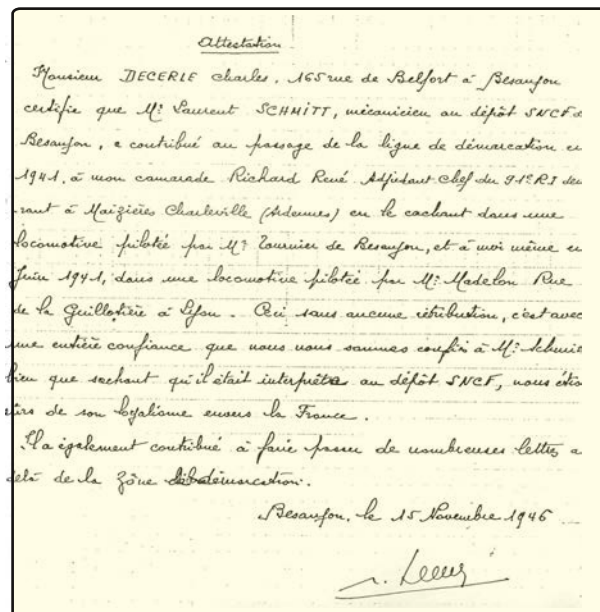 Attestation
Monsieur DECERLE Charles. 165 rue de Belfort à Besançon
certifie que Mr Laurent SCHMITT, mécanicien au dépôt SNCF d
Besançon, a contribué au passage de la ligne de démarcation en
1941, à mon camarade Richard René Adjudant Chef du 91e RI deu
rant à Maizières Charleville (Ardennes) en le cachant dans une
locomotive pilotée par Mr Tournier de Besançon, et à moi même en
Juin 1941, dans une locomotive pilotée par Mr Madelon Rue
de la Guillotière à Lyon. Ceci sans aucune rétribution, c'est avec
une entière confiance que nous nous sommes confiés à Mr Schmit
bien que sachant qu'il était interprète au dépôt SNCF, nous étio
sûrs de son loyalisme envers la France.
Il a également contribué à faire passer de nombreuses lettres a
delà de la zône démarcation.
Besançon, le 15 Novembre 1946